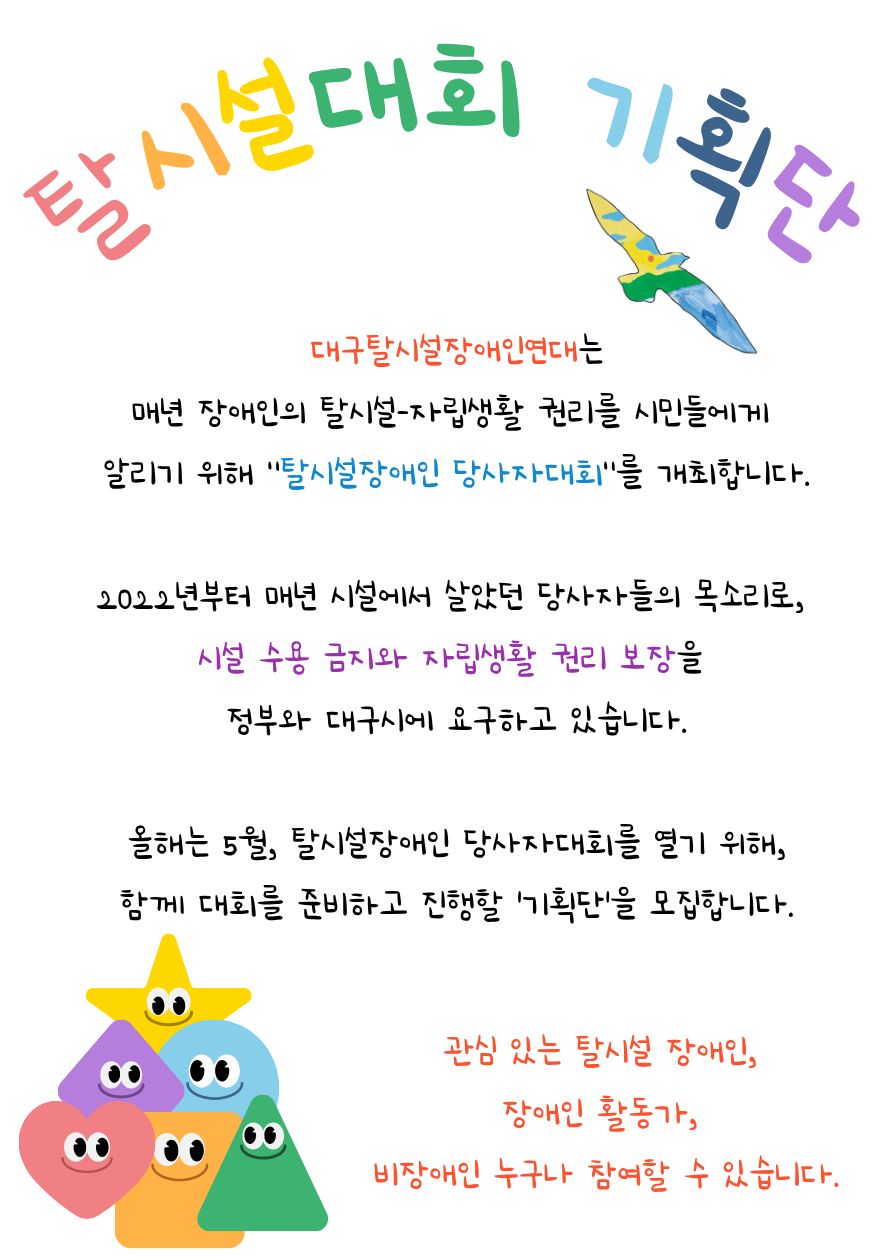 탈시설대회 기획단
대구탈시설장애인연대는
매년 장애인의 탈시설-자립생활 권리를 시민들에게
알리기 위해 "탈시설장애인 당사자대회"를 개최합니다.
2022년부터 매년 시설에서 살았던 당사자들의 목소리로,
시설 수용 금지와 자립생활 권리 보장을
정부와 대구시에 요구하고 있습니다.
올해는 5월, 탈시설장애인 당사자대회를 열기 위해,
함께 대회를 준비하고 진행할 '기획단'을 모집합니다.
관심 있는 탈시설 장애인,
장애인 활동가,
비장애인 누구나 참여할 수 있습니다.